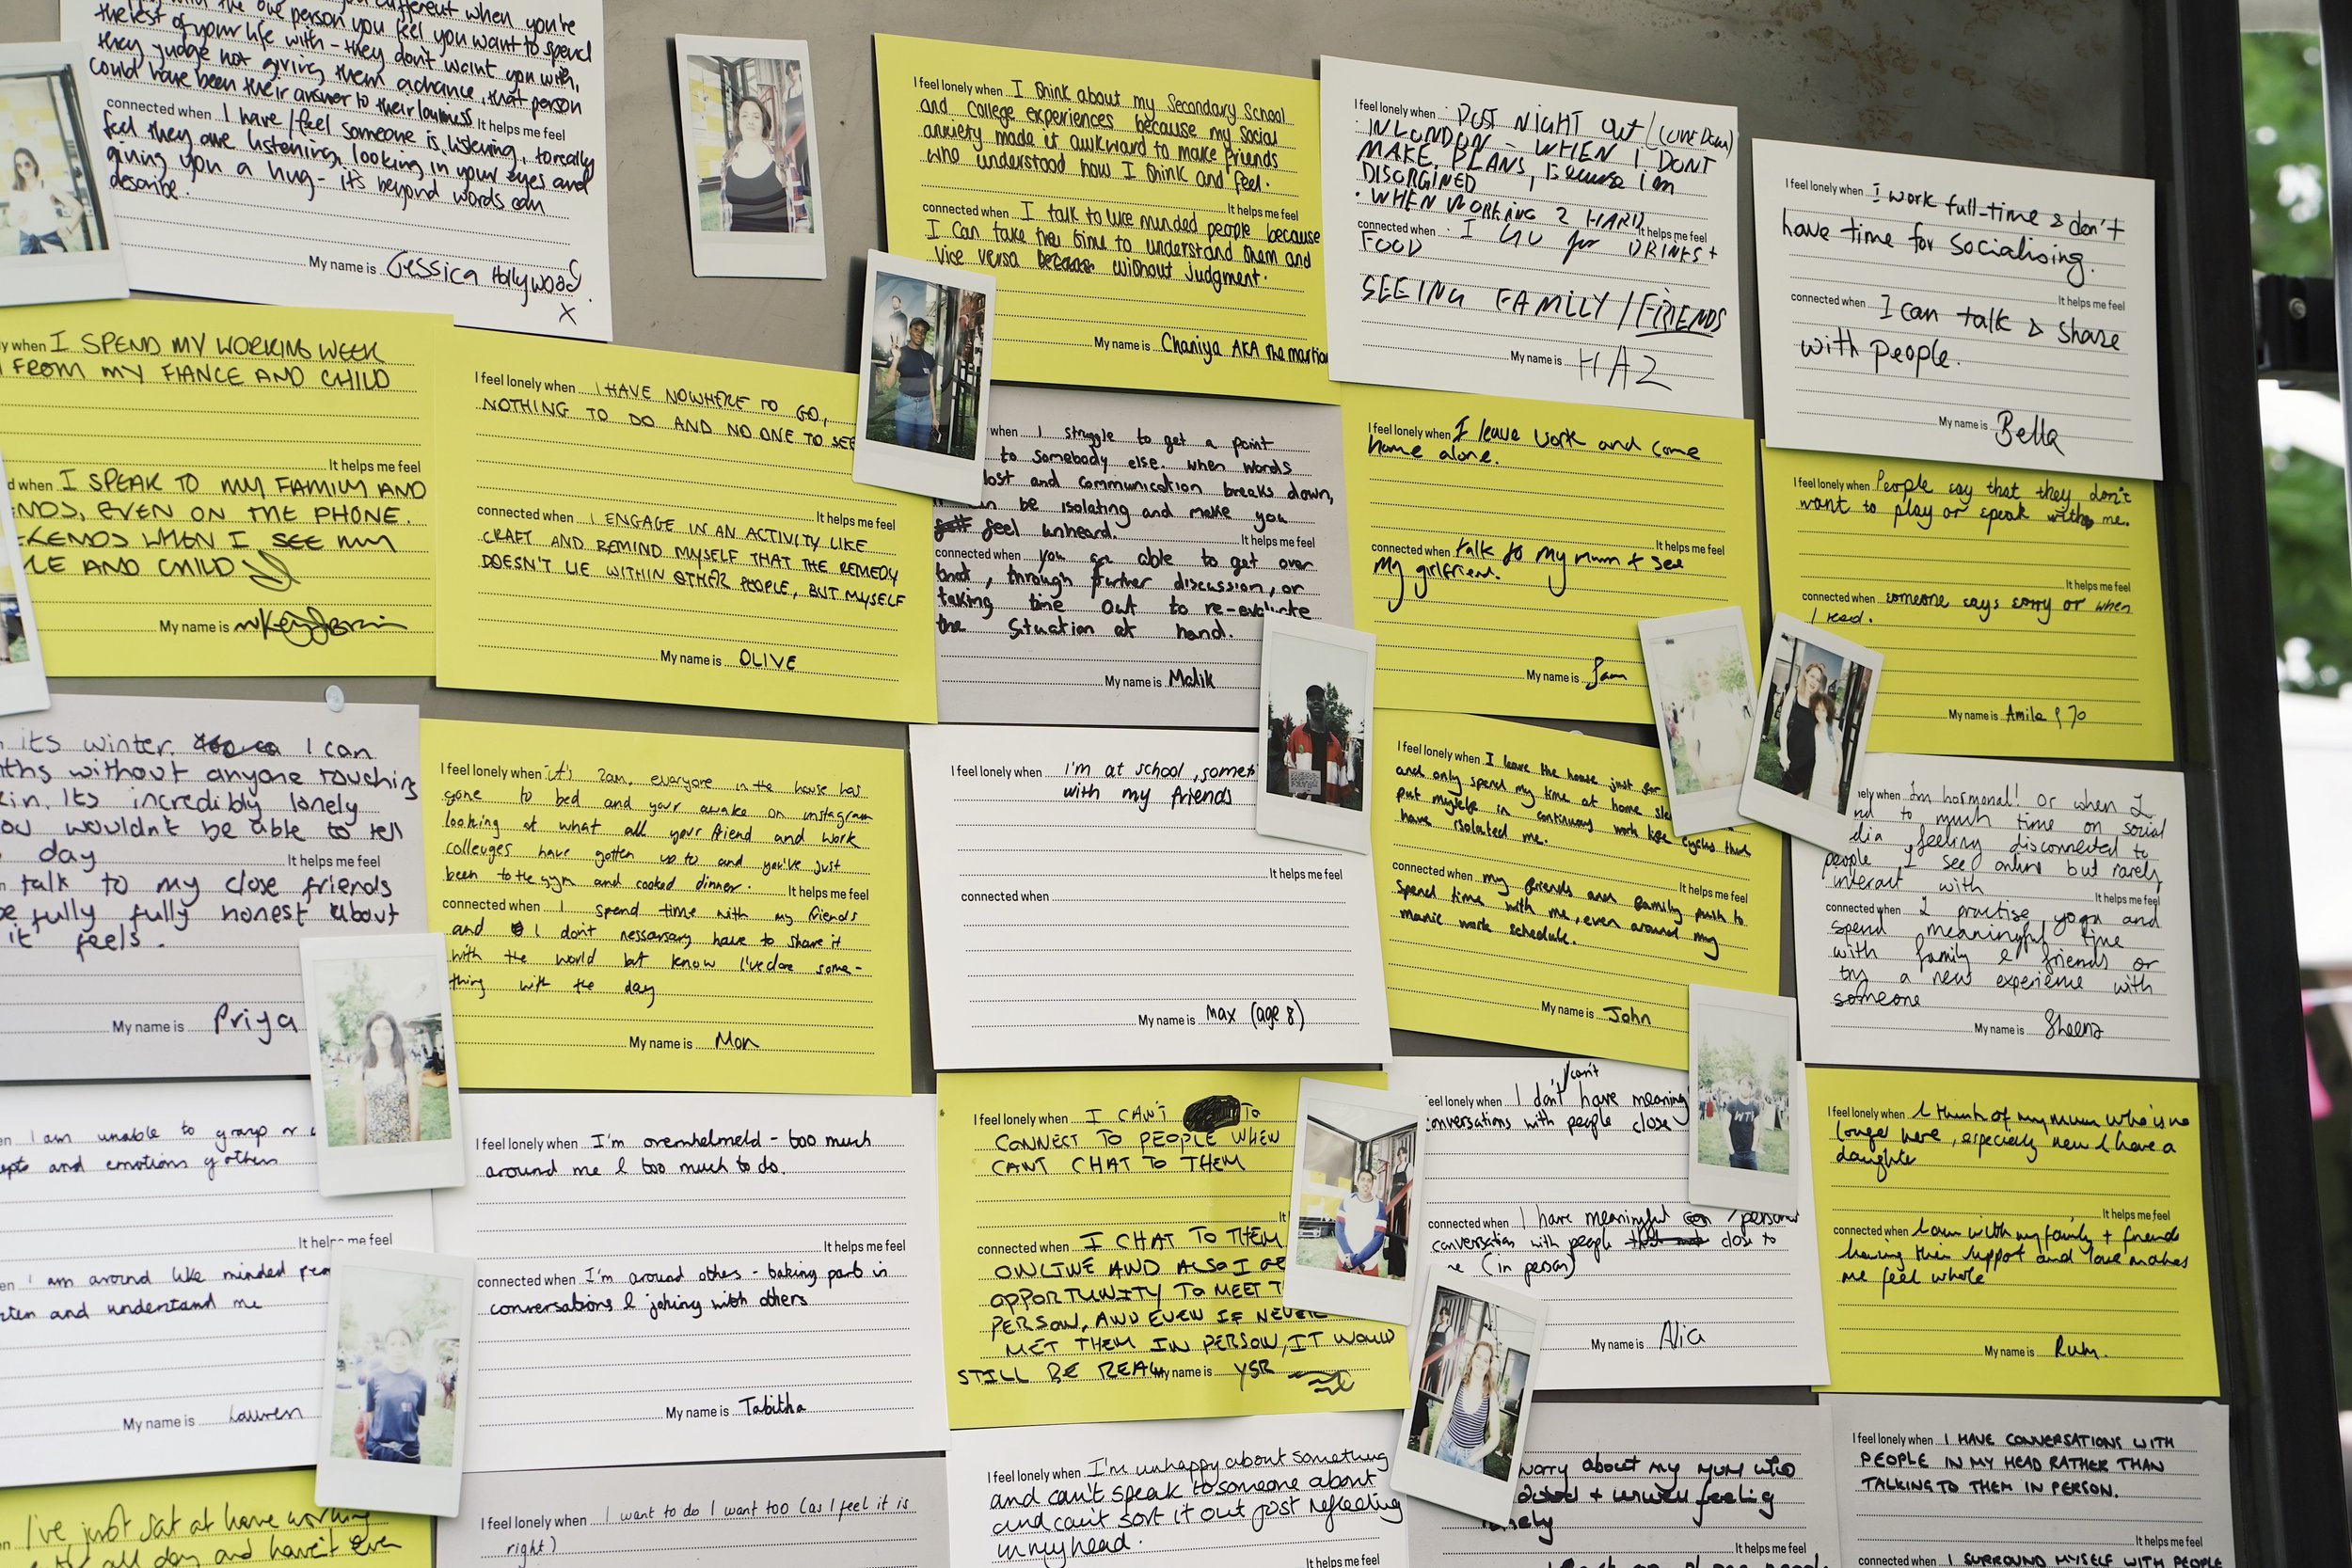 different when you're
with the one person you feel you want to spend
the rest of your life with - they don't want you with,
they judge not giving them a chance, that person
could have been their answer to their louniness It helps me feel
connected when I have/feel someone is listening, to really
feel they are listening, looking in your eyes and
giving you a hug - it's beyond words can
describe.
My name is Jessica Hollywood
X
I feel lonely when I think about my Secondary School
and college experiences because my social
anxiety made it awkward to make friends
who understood how I think and feel.
It helps me feel
connected when I talk to like minded people because
I can take the time to understand them and
Vice versa without judgment.
My name is Chaniya AKA the martian
I feel lonely when · POST NIGHT OUT / (COME DOWN)
· IN LONDON - WHEN I DONT
MAKE PLANS, BECAUSE i'm
DISORGINED
· WHEN WORKING 2 HARD It helps me feel
connected when · I GO for DRINKS +
FOOD
SEEING FAMILY / FRIENDS
My name is HAZ
I feel lonely when I work full-time & don't
have time for socialising.
It helps me feel
connected when I can talk & share
with people.
My name is Bella
when I SPEND MY WORKING WEEK
FROM MY FIANCE AND CHILD
It helps me feel
when I SPEAK TO MY FAMILY AND
NDS, EVEN ON THE PHONE.
KENDS WHEN I SEE MY
CE AND CHILD
My name is
I feel lonely when I HAVE NOWHERE TO GO,
NOTHING TO DO AND NO ONE TO SEE
It helps me feel
connected when I ENGAGE IN AN ACTIVITY LIKE
CRAFT AND REMIND MYSELF THAT THE REMEDY
DOESN'T LIE WITHIN OTHER PEOPLE, BUT MYSELF
My name is OLIVE
when I struggle to get a point
to somebody else. when words
lost and communication breaks down,
n be isolating and make you
feel unheard.
It helps me feel
connected when you are able to get over
that, through further discussion, or
taking time out to re-evaluate
the situation at hand.
My name is Malik
I feel lonely when I leave work and come
home alone.
It helps me feel
connected when talk to my mum + see
my girlfriend.
My name is Sam
I feel lonely when People say that they don't
want to play or speak with me.
It helps me feel
connected when someone says sorry or when
I read.
My name is Amila
its winter. I can
ths without anyone touching
in. Its incredibly lonely
you wouldn't be able to tell
day It helps me feel
talk to my close friends
be fully fully honest about
it feels.
My name is Priya
I feel lonely when it's 2am, everyone in the house has
gone to bed and your awake on instagram
looking at what all your friend and work
colleuges have gotten up to and you've just
been to the gym and cooked dinner. It helps me feel
connected when I spend time with my friends
and I don't nessarsary have to share it
with the world but know I've done some-
thing with the day
My name is Mon
I feel lonely when I'm at school, somet
with my friends
It helps me feel
connected when
My name is Max (age 8)
I feel lonely when I leave the house just for
and only spend my time at home sle
put myself in continuous work life cycles that
have isolated me.
It helps me feel
connected when my friends and family push to
spend time with me, even around my
manic work schedule.
My name is John
when I'm hormonal! Or when I
nd to much time on social
dia feeling disconnected to
people I see online but rarely
interact with
It helps me feel
connected when I practise yoga and
spend meaningful time
with family & friends or
try a new experience with
someone
My name is Sheena
I am unable to grasp
epts and emotions of others
It helps me feel
I am around like minded peo
sten and understand me
My name is Lauren
I feel lonely when I'm overwhelmeld - too much
around me & too much to do.
It helps me feel
connected when I'm around others - taking part in
conversations & joking with others
My name is Tabitha
I feel lonely when I CAN'T TO
CONNECT TO PEOPLE WHEN
CANT CHAT TO THEM
connected when I CHAT TO THEM
ONLINE AND ALSO I GE
OPPORTUNITY TO MEET T
PERSON, AND EVEN IF NEVER
MET THEM IN PERSON, IT WOULD
STILL BE REAL My name is YSR
feel lonely when I don't /can't have meaning
conversations with people close
connected when I have meaningful /personal
conversation with people close to
me (in person)
My name is Alia
WTF
I feel lonely when I think of my mum who is no
longer here, especially now I have a
daughter
It helps me feel
connected when I am with my family + friends
having their support and love makes
me feel whole
My name is Rum.
I've just sat at home working
all day and haven't even
I feel lonely when I want to do I want too (as I feel it is
right)
I feel lonely when I'm unhappy about something
and can't speak to someone about
and can't sort it out just reflecting
in my head.
It helps me feel
worry about my mum who
+ unwell feeling
lonely
It helps me feel
I feel lonely when I HAVE CONVERSATIONS WITH
PEOPLE IN MY HEAD RATHER THAN
TALKING TO THEM IN PERSON.
It helps me feel
connected when I SURROUND MYSELF WITH PEOPLE